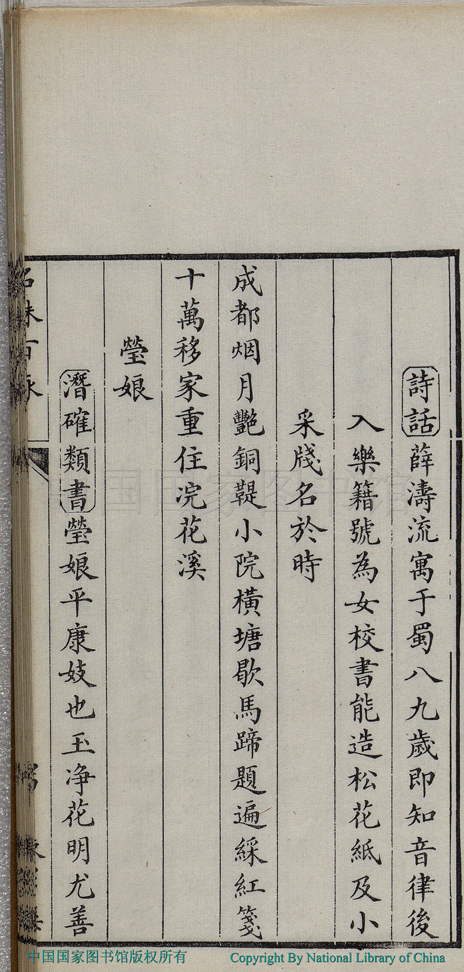 詩話薛濤流寓于蜀八九歲即知音律後
入樂籍號為女校書能造松花紙及小
采牋名於時
成都烟月艷銅鞮小院橫塘歇馬蹄題遍綵紅箋
十萬移家重住浣花溪
瑩娘
潛確類書瑩娘平康妓也玉净花明尤善
名姝百詠
中国国家图书馆版权所有
Copyright By National Library of China